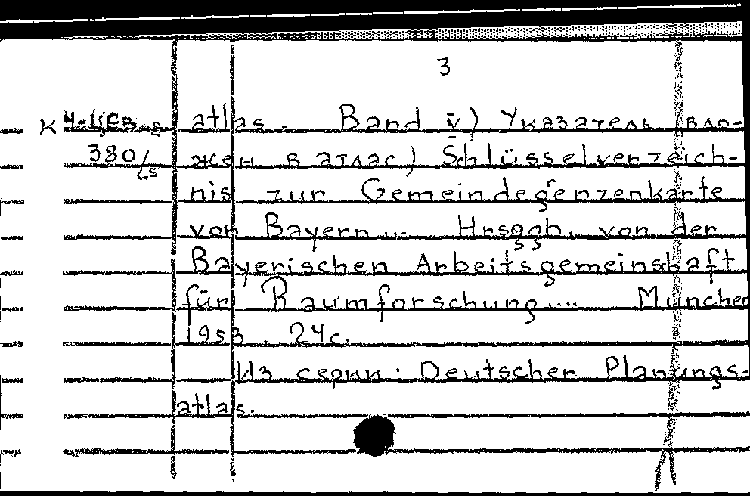 3
atlas. Band V) Указатель вло-
380/ жен в атлас) Schlüsselverzeich-
nis zur Gemeindegrenzenkarte
von Bayern... Hrsggb. von der
Bayerischen Arbeitsgemeinschaft
für Raumforschung... München
1953. 24с.
Из серии: Deutscher Planungs-
atlas.